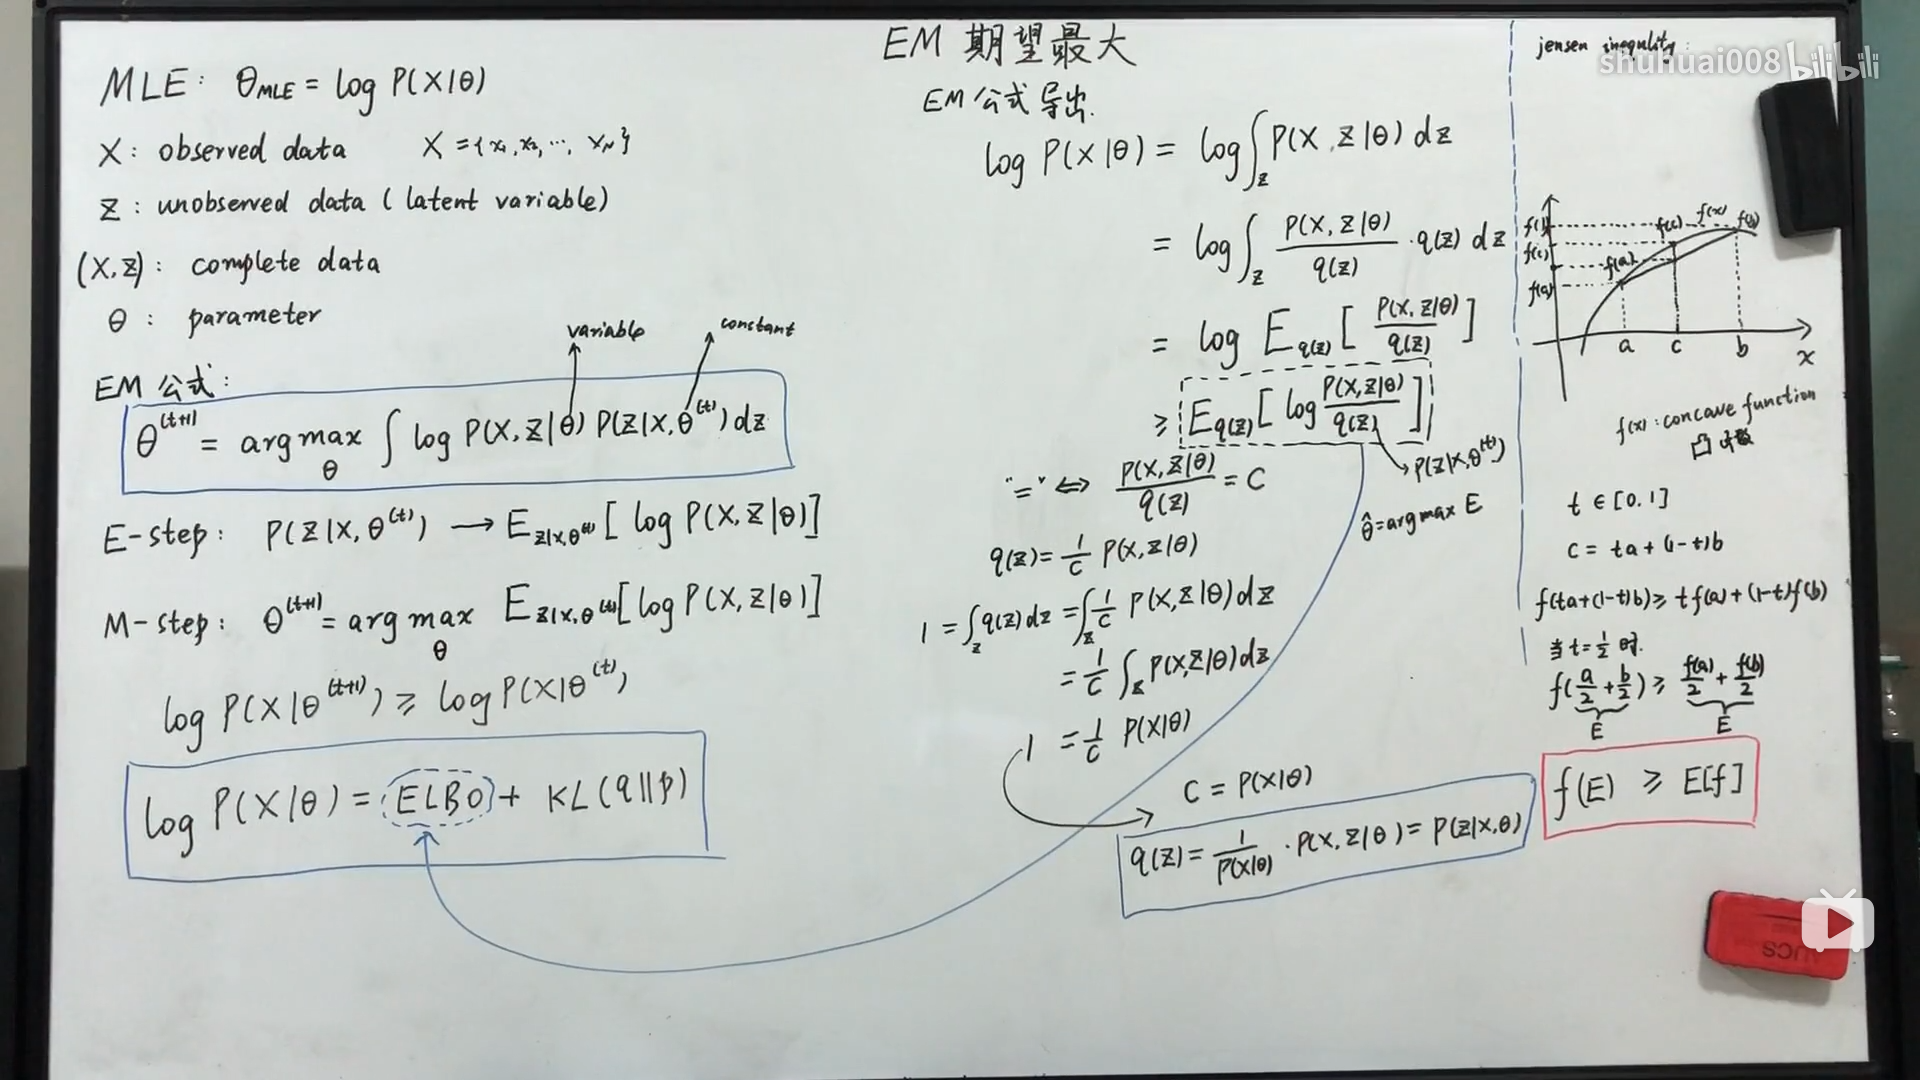 EM 期望最大
MLE: θ_MLE = log P(X|θ)
X: observed data X = {x₁, x₂, ⋯, x_N}
Z: unobserved data (latent variable)
(X, Z): complete data
θ: parameter
EM 公式:
variable constant
θ^(t+1) = arg max_θ ∫ log P(X, Z|θ) P(Z|X, θ^(t)) dz
E-step: P(Z|X, θ^(t)) → E_{Z|X,θ^(t)} [log P(X, Z|θ)]
M-step: θ^(t+1) = arg max_θ E_{Z|X,θ^(t)} [log P(X, Z|θ)]
log P(X|θ^(t+1)) ⩾ log P(X|θ^(t))
log P(X|θ) = ELBO + KL(q||p)
EM 公式导出.
log P(X|θ) = log ∫_Z P(X, Z|θ) dz
= log ∫_Z P(X, Z|θ)/q(Z) · q(Z) dz
= log E_{q(Z)} [P(X, Z|θ)/q(Z)]
⩾ E_{q(Z)} [log P(X, Z|θ)/q(Z)]
→ P(Z|X, θ^(t))
θ̂ = arg max E
"=" ⇔ P(X, Z|θ)/q(Z) = C
q(Z) = 1/C P(X, Z|θ)
1 = ∫_Z q(Z) dz = ∫_Z 1/C P(X, Z|θ) dz
= 1/C ∫_Z P(X, Z|θ) dz
1 = 1/C P(X|θ)
C = P(X|θ)
q(Z) = 1/P(X|θ) · P(X, Z|θ) = P(Z|X, θ)
jensen inequlity:
shuhuai008 bilibili
f(x)
f(b) f(c) f(b)
f(c)
f(a)
f(a)
a c b
x
f(x): concave function
凸函数
t ∈ [0, 1]
c = ta + (1-t)b
f(ta+(1-t)b) ⩾ t f(a) + (1-t)f(b)
当 t=1/2 时.
f(a/2 + b/2) ⩾ f(a)/2 + f(b)/2
E E
f(E) ⩾ E[f]